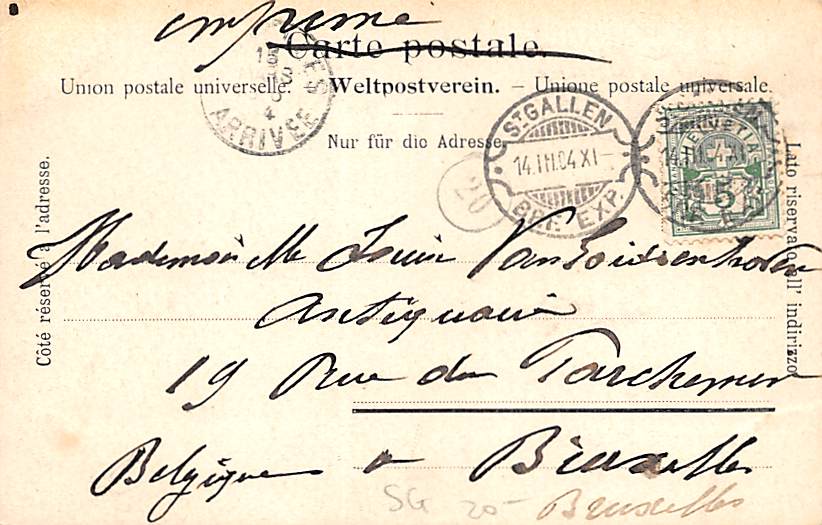 imprimé
Carte postale.
Union postale universelle. – Weltpostverein. – Unione postale universale.
15
4
ARRIVÉE
Nur für die Adresse.
ST GALLEN
14.III.04.XI–
BRF. EXP.
HELVETIA
5
20
Côté réservé à l'adresse.
Lato riservato all' indirizzo.
Mademoiselle
Antiquaire
19 Rue du
Belgique à Bruxelles
SG 20- Bruxelles